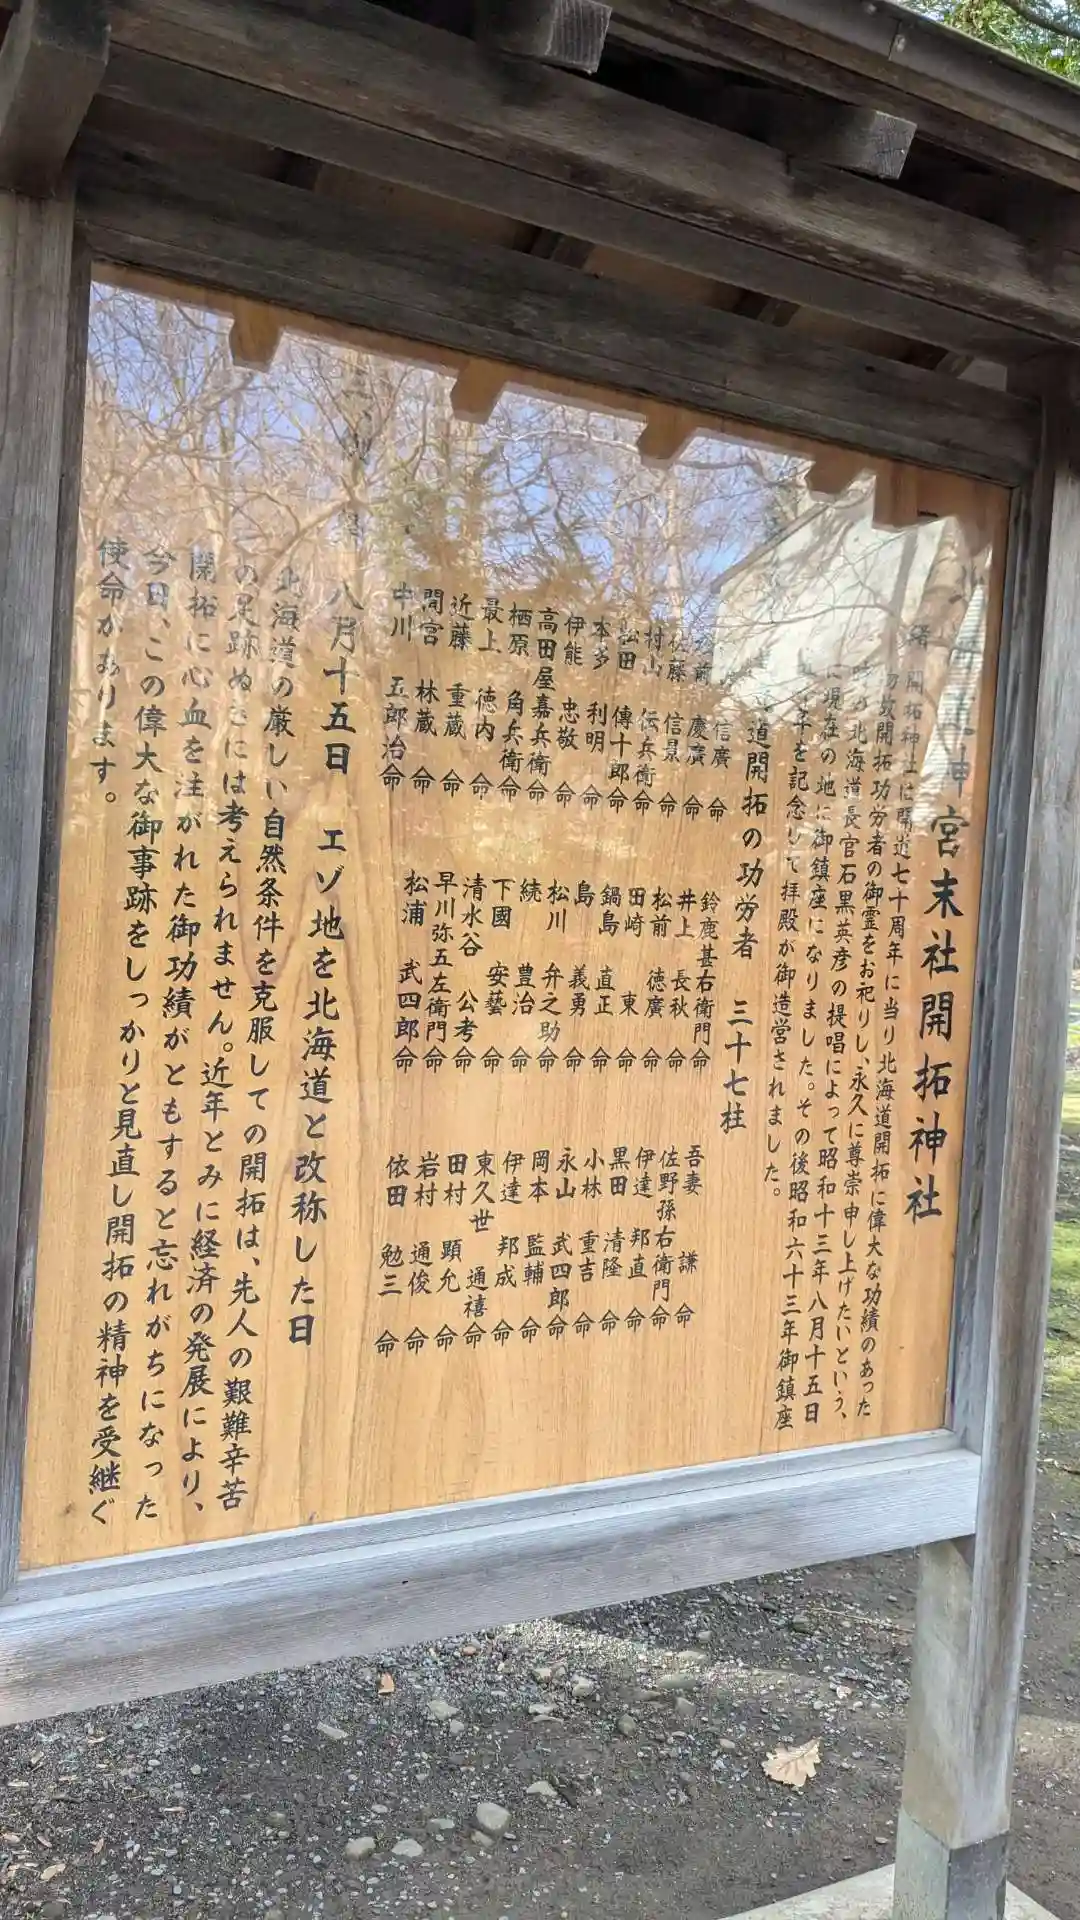 神宮末社開拓神社
開拓神社は開道七十周年に当り北海道開拓に偉大な功績のあった
開拓功労者の御霊をお祀りし、永久に尊崇申し上げたいという、
の北海道長官石黒英彦の提唱によって昭和十三年八月十五日
に現在の地に御鎮座になりました。その後昭和六十三年御鎮座
年を記念して拝殿が御造営されました。
道開拓の功労者 三十七柱
信廣命
慶廣命
佐藤 信景命
村山 伝兵衛命
松田 傳十郎命
本多 利明命
伊能 忠敬命
高田屋嘉兵衛命
栖原 角兵衛命
最上 徳内命
近藤 重蔵命
間宮 林蔵命
中川 五郎治命
鈴鹿甚右衛門命
井上 長秋命
松前 徳廣命
田崎 東命
鍋島 直正命
島 義勇命
松川 弁之助命
続 豊治命
下國 安藝命
清水谷 公考命
早川弥五左衛門命
松浦 武四郎命
吾妻 謙命
佐野孫右衛門命
伊達 邦直命
黒田 清隆命
小林 重吉命
永山 武四郎命
岡本 監輔命
伊達 邦成命
東久世 通禧命
田村 顕允命
岩村 通俊命
依田 勉三命
八月十五日 エゾ地を北海道と改称した日
北海道の厳しい自然条件を克服しての開拓は、先人の艱難辛苦
の足跡ぬきには考えられません。近年とみに経済の発展により、
開拓に心血を注がれた御功績がともすると忘れがちになった
今日、この偉大な御事跡をしっかりと見直し開拓の精神を受継ぐ
使命があります。